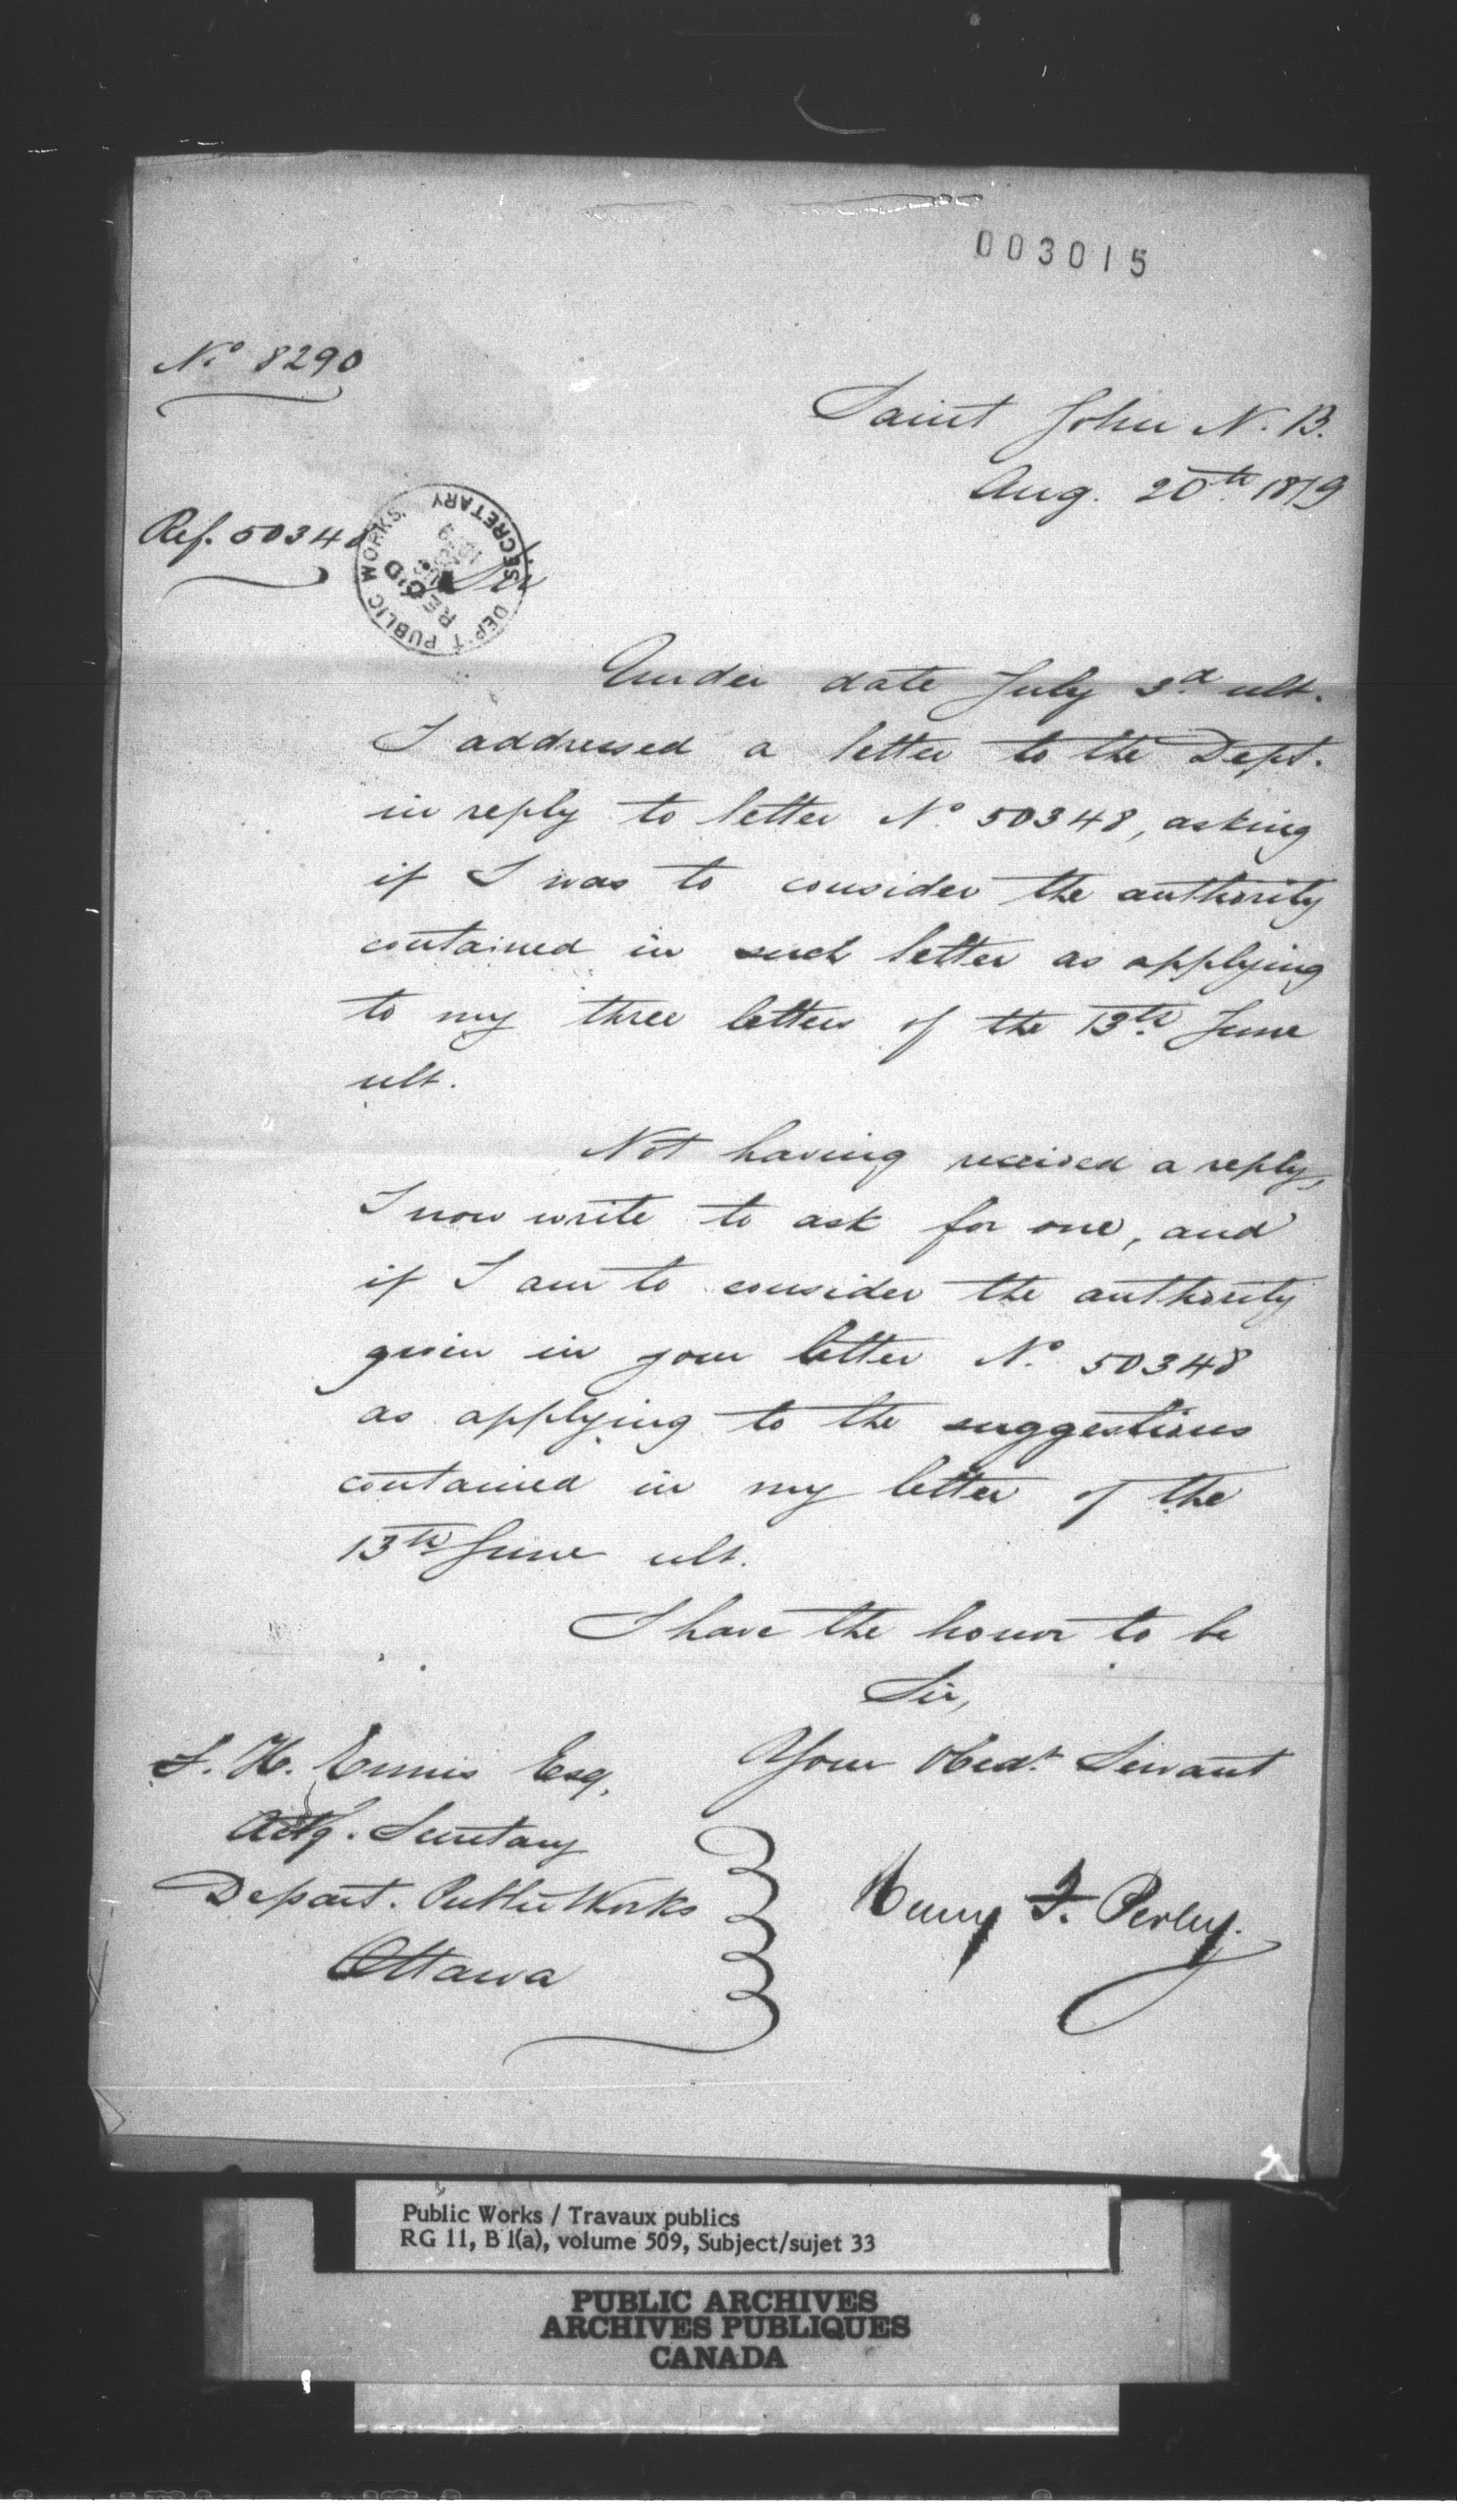 003015
No 8290
Saint John N. B.
Aug. 20th 1879
Ref. 50348
DEP'T PUBLIC WORKS. SECRETARY
REC'D
Sir
Under date July 3d ult.
I addressed a letter to the Dept.
in reply to letter No 50348, asking
if I was to consider the authority
contained in such letter as applying
to my three letters of the 13th June
ult.
Not having received a reply,
I now write to ask for one, and
if I am to consider the authority
given in your letter No 50348
as applying to the suggestions
contained in my letter of the
13th June ult.
I have the honor to be
Sir,
Your Obedt. Servant
Henry F. Perley.
S. H. Ennis Esq.
Actg. Secretary
Depart. Public Works
Ottawa
Public Works / Travaux publics
RG 11, B 1(a), volume 509, Subject/sujet 33
PUBLIC ARCHIVES
ARCHIVES PUBLIQUES
CANADA